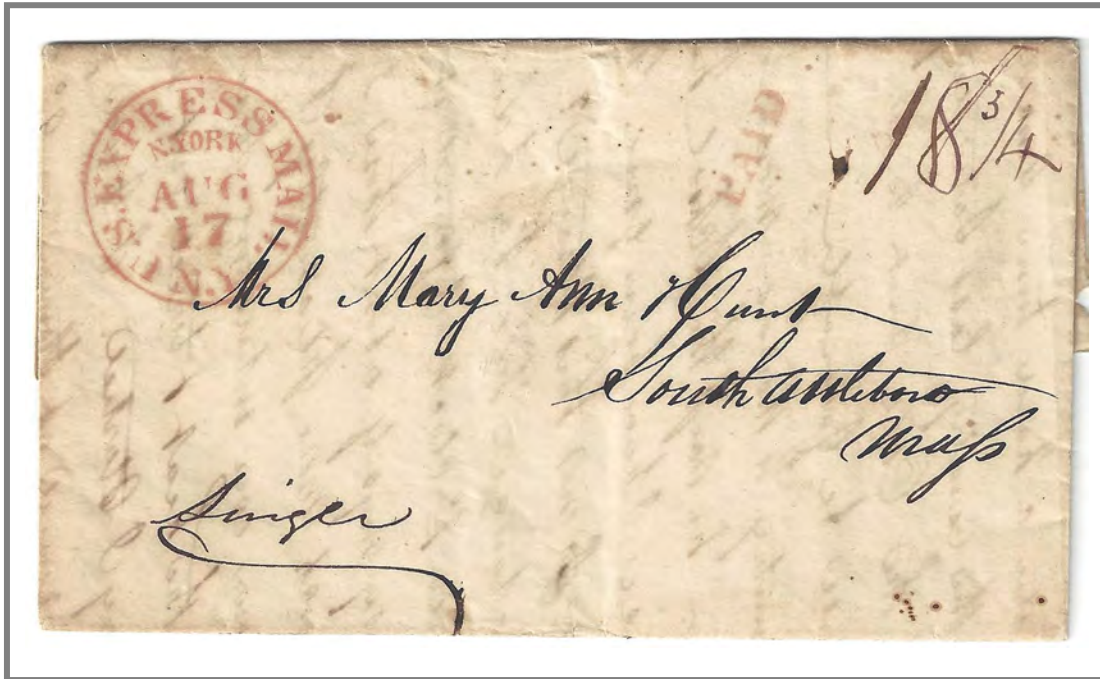 U.S. EXPRESS MAIL
N.YORK
AUG
17
N.Y.
PAID
18 3/4
Mrs Mary Ann Hunt
South Attleboro
Mass
Singer